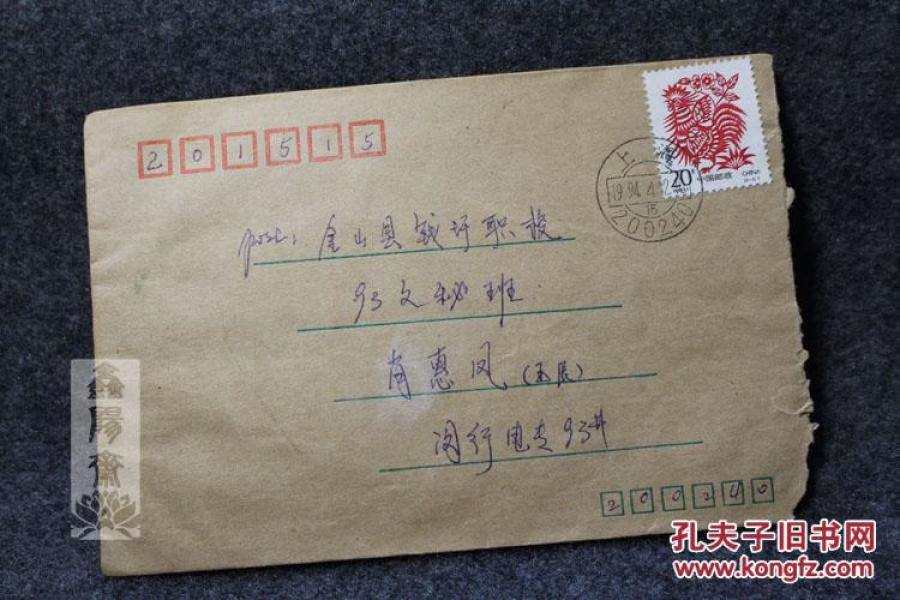 201515
20分
中国邮政 CHINA
上
19.94.4.12
15
200240
post: 金山县钱圩职校
93文秘班
肖惠凤(玉辰)
闵行电专93#
200240
鑫陽齋
孔夫子旧书网
www.kongfz.com